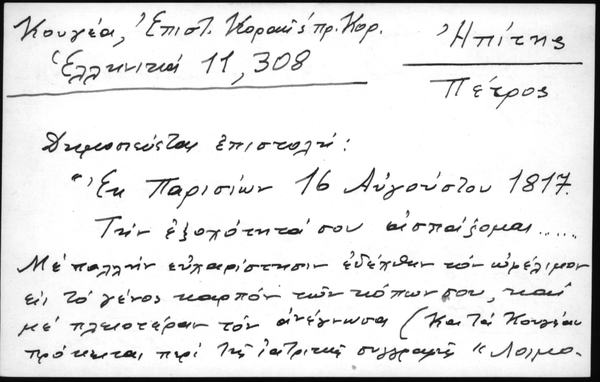 Κουγέα, Ἐπιστ. Κοραῆ πρ. Κορ.
Ἑλληνικά 11, 308
Ἠπίτης
Πέτρος
Δημοσιεύεται ἐπιστολή:
"Ἐκ Παρισίων 16 Αὐγούστου 1817.
Τὴν ἐξοχότητά σου ἀσπάζομαι.....
Μέ πολλήν εὐχαρίστησιν ἐδέχθην τόν ὠφέλιμον
εἰς τό γένος καρπόν τῶν κόπων σου, καί
μέ πλειοτέραν τόν ἀνέγνωσα (Κατά Κουγέαν
πρόκειται περί τῆς ἰατρικῆς συγγραφῆς "Λοιμο-